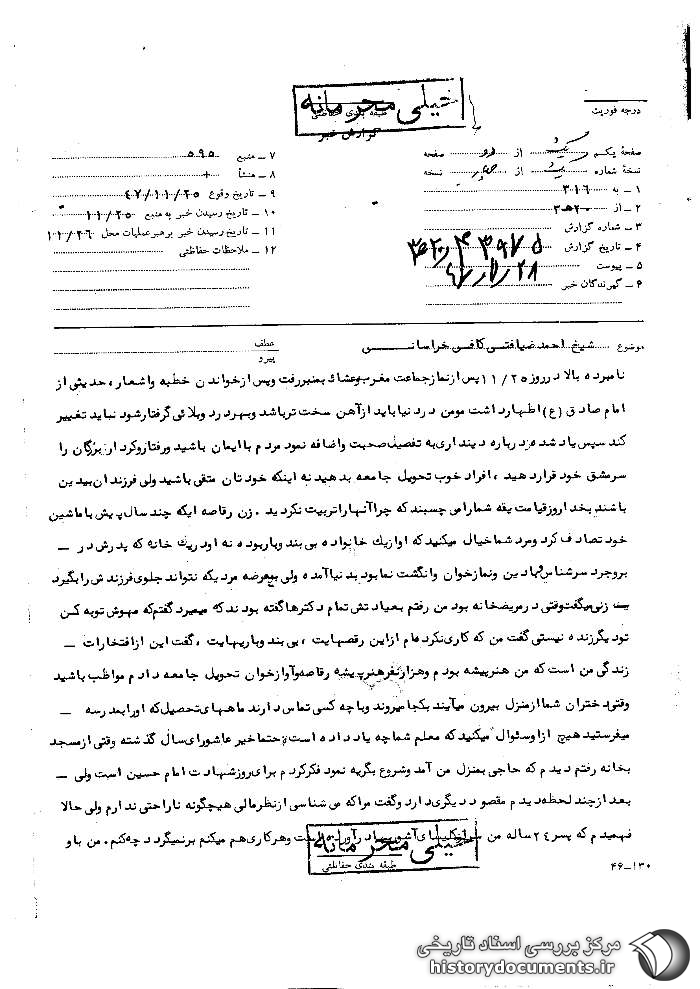 خیلی محرمانه
طبقه بندی حفاظتی
گزارش خبر
درجه فوریت
صفحهٔ یکم یک از دو صفحه
نسخهٔ شماره یک از نسخه
۱ ـ به ۳۱۶
۲ ـ از ۲۰ هـ ۳
۳ ـ شماره گزارش
۴ ـ تاریخ گزارش ۴۷/۱۱/۲۸
۵ ـ پیوست
۶ ـ گیرندگان خبر
۷ ـ منبع ۵۹۵
۸ ـ منشأ +
۹ ـ تاریخ وقوع ۴۷/۱۱/۲۵
۱۰ ـ تاریخ رسیدن خبر به منبع ۱۱/۲۵
۱۱ ـ تاریخ رسیدن خبر برهبر عملیات محل ۱۱/۲۶
۱۲ ـ ملاحظات حفاظتی
موضوع شیخ احمد ضیافتی کافی خراسانی
عطف
پیرو
نامبرده بالا در روز ۱۱/۲۵ پس از نماز جماعت مغرب و عشاء بمنبر رفت و پس از خواندن خطبه و اشعار، حدیثی از
امام صادق (ع) اظهار داشت مومن در دنیا باید از آهن سخت تر باشد و بهر درد و بلائی گرفتار شود نباید تغییر
کند سپس یاد شده درباره دینداری به تفصیل صحبت و اضافه نمود مردم با ایمان باشید و رفتار و کردار بزرگان را
سرمشق خود قرار دهید ، افراد خوب تحویل جامعه بدهید نه اینکه خودتان متقی باشید ولی فرزندان بیدین
باشند بخدا روز قیامت یقه شما را می چسبند که چرا آنها را تربیت نکردید . زن رقاصه ایکه چند سال پیش با ماشین
خود تصادف کرد و مرد شما خیال میکنید که او از یک خانواده بی بند و بار بوده نه او در یک خانه که پدرش در ـ
بروجرد سرشناس و با دین و نماز خوان و انگشت نما بود بدنیا آمده ولی بیعرضه مردیکه نتواند جلوی فرزندش را بگیرد
زنی میگفت وقتی در مریضخانه بود من رفتم بعیادتش تمام دکترها گفته بودند که میمیرد گفتم که مهوش توبه کن
تو دیگر زنده نیستی گفت من که کاری نکرده ام از این رقصهایت ، بی بند و باریهایت ، گفت این از افتخارات ـ
زندگی من است که من هنرپیشه بودم و هزار نفر هنرپیشه رقاصه و آوازخوان تحویل جامعه دادم مواظب باشید
وقتی دختران شما از منزل بیرون میآیند بکجا میروند و با چه کسی تماس دارند ماههای تحصیل که او را بمدرسه ـ
میفرستید هیچ از او سئوال میکنید که معلم شما چه یاد داده است حتما خیر عاشورای سال گذشته وقتی از مسجد
بخانه رفتم دیدم که حاجی بمنزل من آمد و شروع بگریه نمود فکر کردم برای روز شهادت امام حسین است ولی ـ
بعد از چند لحظه دیدم مقصود دیگری دارد و گفت مرا که می شناسی از نظر مالی هیچگونه ناراحتی ندارم ولی حالا
فهمیدم که پسر ۲۴ ساله من است و هر کاری هم میکنم برنمیگردد چه کنم . من با و
خیلی محرمانه
طبقه بندی حفاظتی
۴۶-۱۳۰
مرکز بررسی اسناد تاریخی
historydocuments.ir